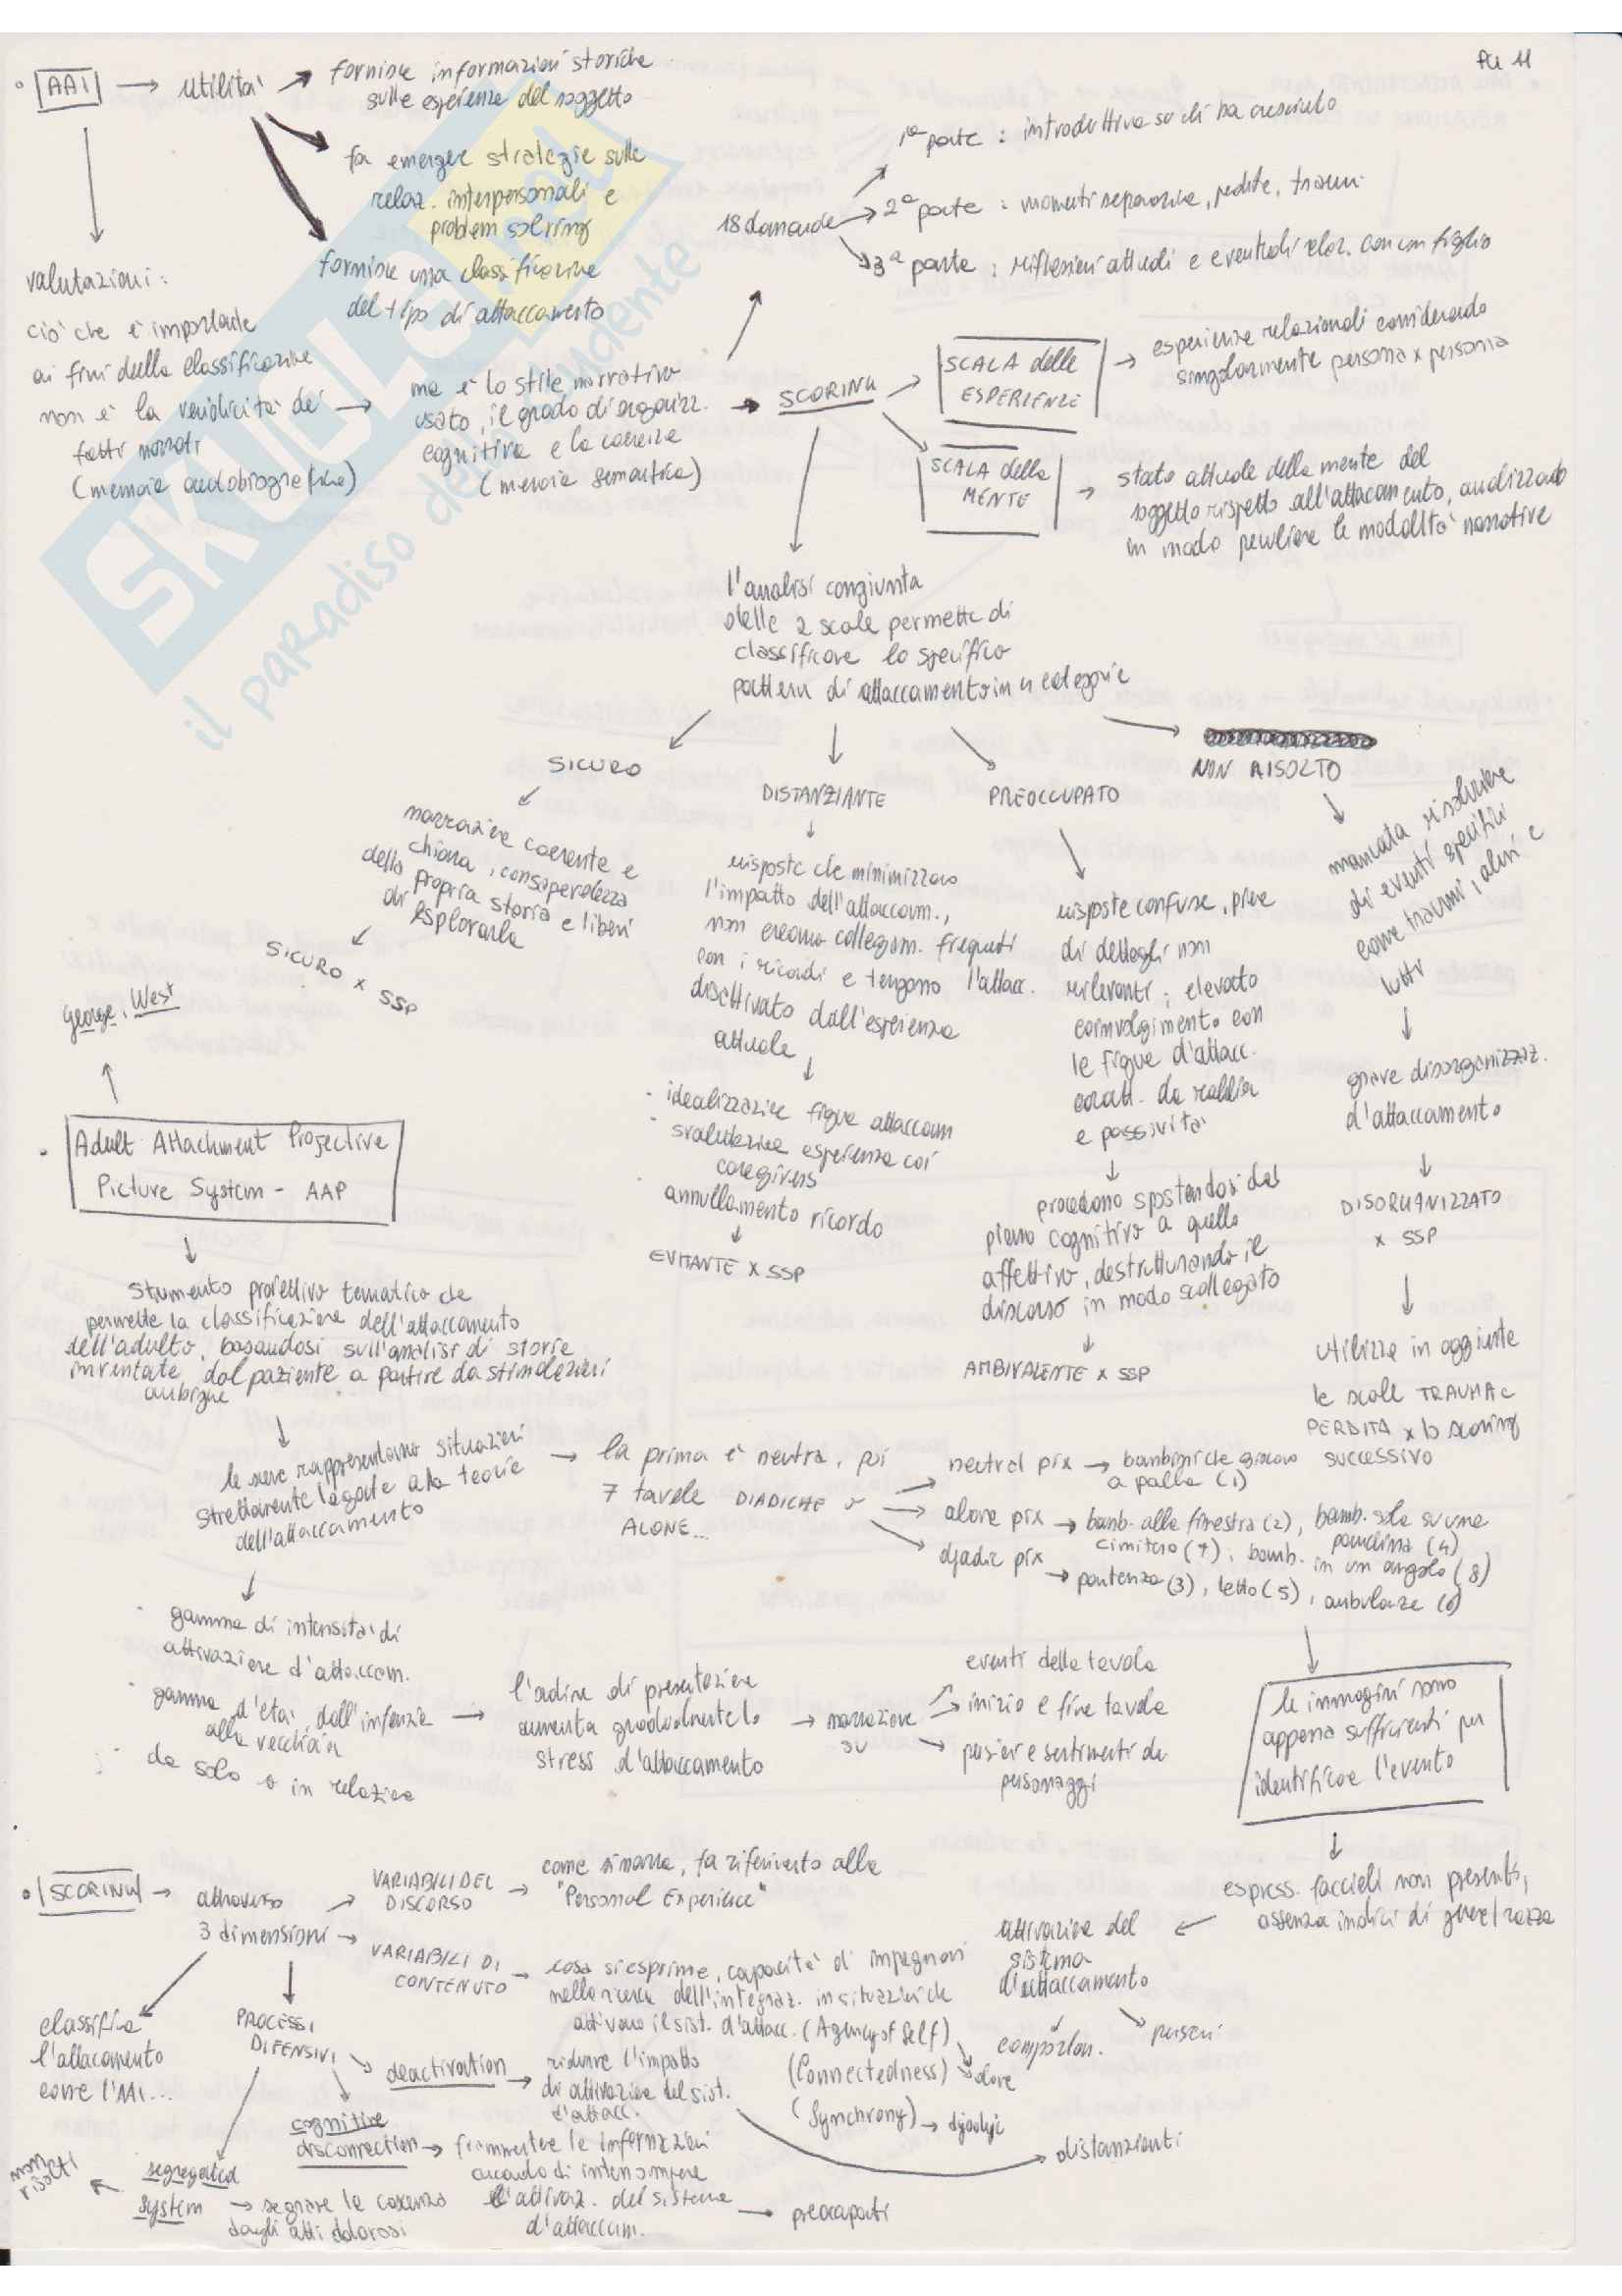 PG 11
• AAI → utilità
fornisce informazioni storiche
sulle esperienze del soggetto
fa emergere strategie sulle
relaz. interpersonali e
problem solving
fornisce una classificazione
del tipo di attaccamento
valutazioni:
ciò che è importante
ai fini della classificazione
non è la veridicità dei
fatti narrati
(memoria autobiografica)
ma è lo stile narrativo
usato, il grado di organizz.
cognitiva e la coerenza
(memoria semantica)
18 domande
1ª parte : introduttiva su chi ha cresciuto
2ª parte : momenti separazione, perdite, traumi
3ª parte : riflessioni attuali e eventuali relaz. con un figlio
SCORING
SCALA delle
ESPERIENZE
esperienze relazionali considerando
singolarmente persona x persona
SCALA della
MENTE
stato attuale della mente del
soggetto rispetto all'attaccamento, analizzando
in modo peculiare le modalità narrative
l'analisi congiunta
delle 2 scale permette di
classificare lo specifico
pattern di attaccamento in 4 categorie
SICURO
narrazione coerente e
chiara, consapevolezza
della propria storia e liberi
di esplorarla
SICURO x SSP
DISTANZIANTE
risposte che minimizzano
l'impatto dell'attaccam.,
non creano collegam. frequenti
con i ricordi e tengono l'attacc.
disattivato dall'esperienza
attuale
- idealizzazione figure attaccam
- svalutazione esperienza coi
caregivers
- annullamento ricordo
EVITANTE x SSP
PREOCCUPATO
risposte confuse, piene
di dettagli non
rilevanti; elevato
coinvolgimento con
le figure d'attacc.
caratt. da rabbia
e passività
procedono spostandosi dal
piano cognitivo a quello
affettivo, destrutturando il
discorso in modo scollegato
AMBIVALENTE x SSP
NON RISOLTO
mancata risoluzione
di eventi specifici
come traumi, abusi e
lutti
grave disorganizzaz.
d'attaccamento
DISORGANIZZATO
x SSP
utilizza in aggiunta
le scale TRAUMA e
PERDITA x lo scoring
successivo
George, West
• Adult Attachment Projective
Picture System - AAP
strumento proiettivo tematico che
permette la classificazione dell'attaccamento
dell'adulto, basandosi sull'analisi di storie
inventate dal paziente a partire da stimolazioni
ambigue
le scene rappresentano situazioni
strettamente legate alla teoria
dell'attaccamento
la prima è neutra, poi
7 tavole DIADICHE o
ALONE...
neutral pix → bambini che giocano
a palla (1)
alone pix → bamb. alla finestra (2), bamb. sola su una
panchina (4)
cimitero (7), bamb. in un angolo (8)
dyadic pix → partenza (3), letto (5), ambulanza (6)
- gamma di intensità di
attivazione d'attaccam.
- gamma d'età, dall'infanzia
alla vecchiaia
- da solo o in relazione
l'ordine di presentazione
aumenta gradualmente lo
stress d'attaccamento
narrazione
su
eventi della tavola
inizio e fine tavola
pensieri e sentimenti dei
personaggi
le immagini sono
appena sufficienti per
identificare l'evento
espress. facciali non presenti,
assenza indici di genere/razza
attivazione del
sistema
d'attaccamento
comportam.
pensieri
• SCORING → attraverso
3 dimensioni
VARIABILI DEL
DISCORSO
come si narra, fa riferimento alla
"Personal Experience"
VARIABILI DI
CONTENUTO
cosa si esprime, capacità di impegnarsi
nella ricerca dell'integraz. in situazioni che
attivano il sist. d'attacc. (Agency of Self)
(Connectedness) → alone
(Synchrony) → dyadic
classifica
l'attaccamento
come l'AAI...
PROCESSI
DIFENSIVI
deactivation
ridurre l'impatto
di attivazione del sist.
d'attacc.
distanzianti
cognitive
disconnection → frammentare le informazioni
cercando di interrompere
l'attivaz. del sistema
d'attaccam.
preoccupati
segregated
system → segregare la coscienza
dagli atti dolorosi
non
risolti
SKUOLA.net
il paradiso dello studente